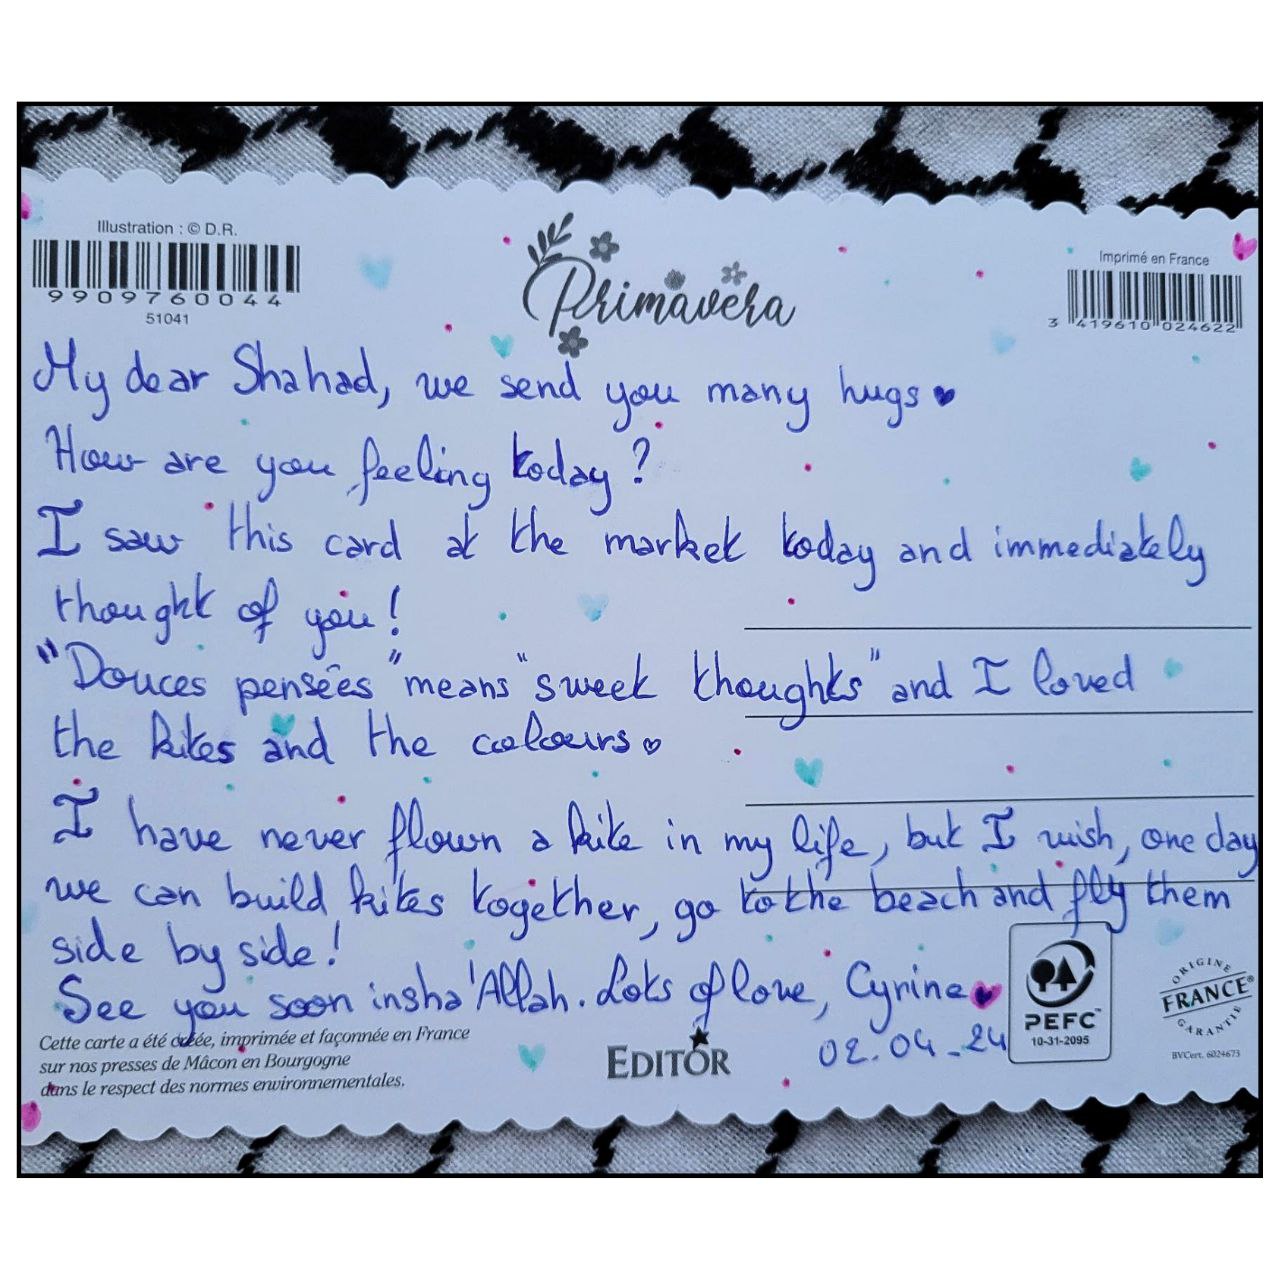 Illustration : © D.R.
9909760044
51041
Primavera
Imprimé en France
3 419610 024622
My dear Shahad, we send you many hugs
How are you feeling today ?
I saw this card at the market today and immediately
thought of you !
"Douces pensées" means "sweet thoughts" and I loved
the kites and the colours
I have never flown a kite in my life, but I wish, one day
we can build kites together, go to the beach and fly them
side by side !
See you soon insha'Allah. Lots of love, Cyrine
02.04.24
Cette carte a été créée, imprimée et façonnée en France
sur nos presses de Mâcon en Bourgogne
dans le respect des normes environnementales.
EDITOR
PEFC™
10-31-2095
ORIGINE
FRANCE®
GARANTIE
BVCert. 6024673